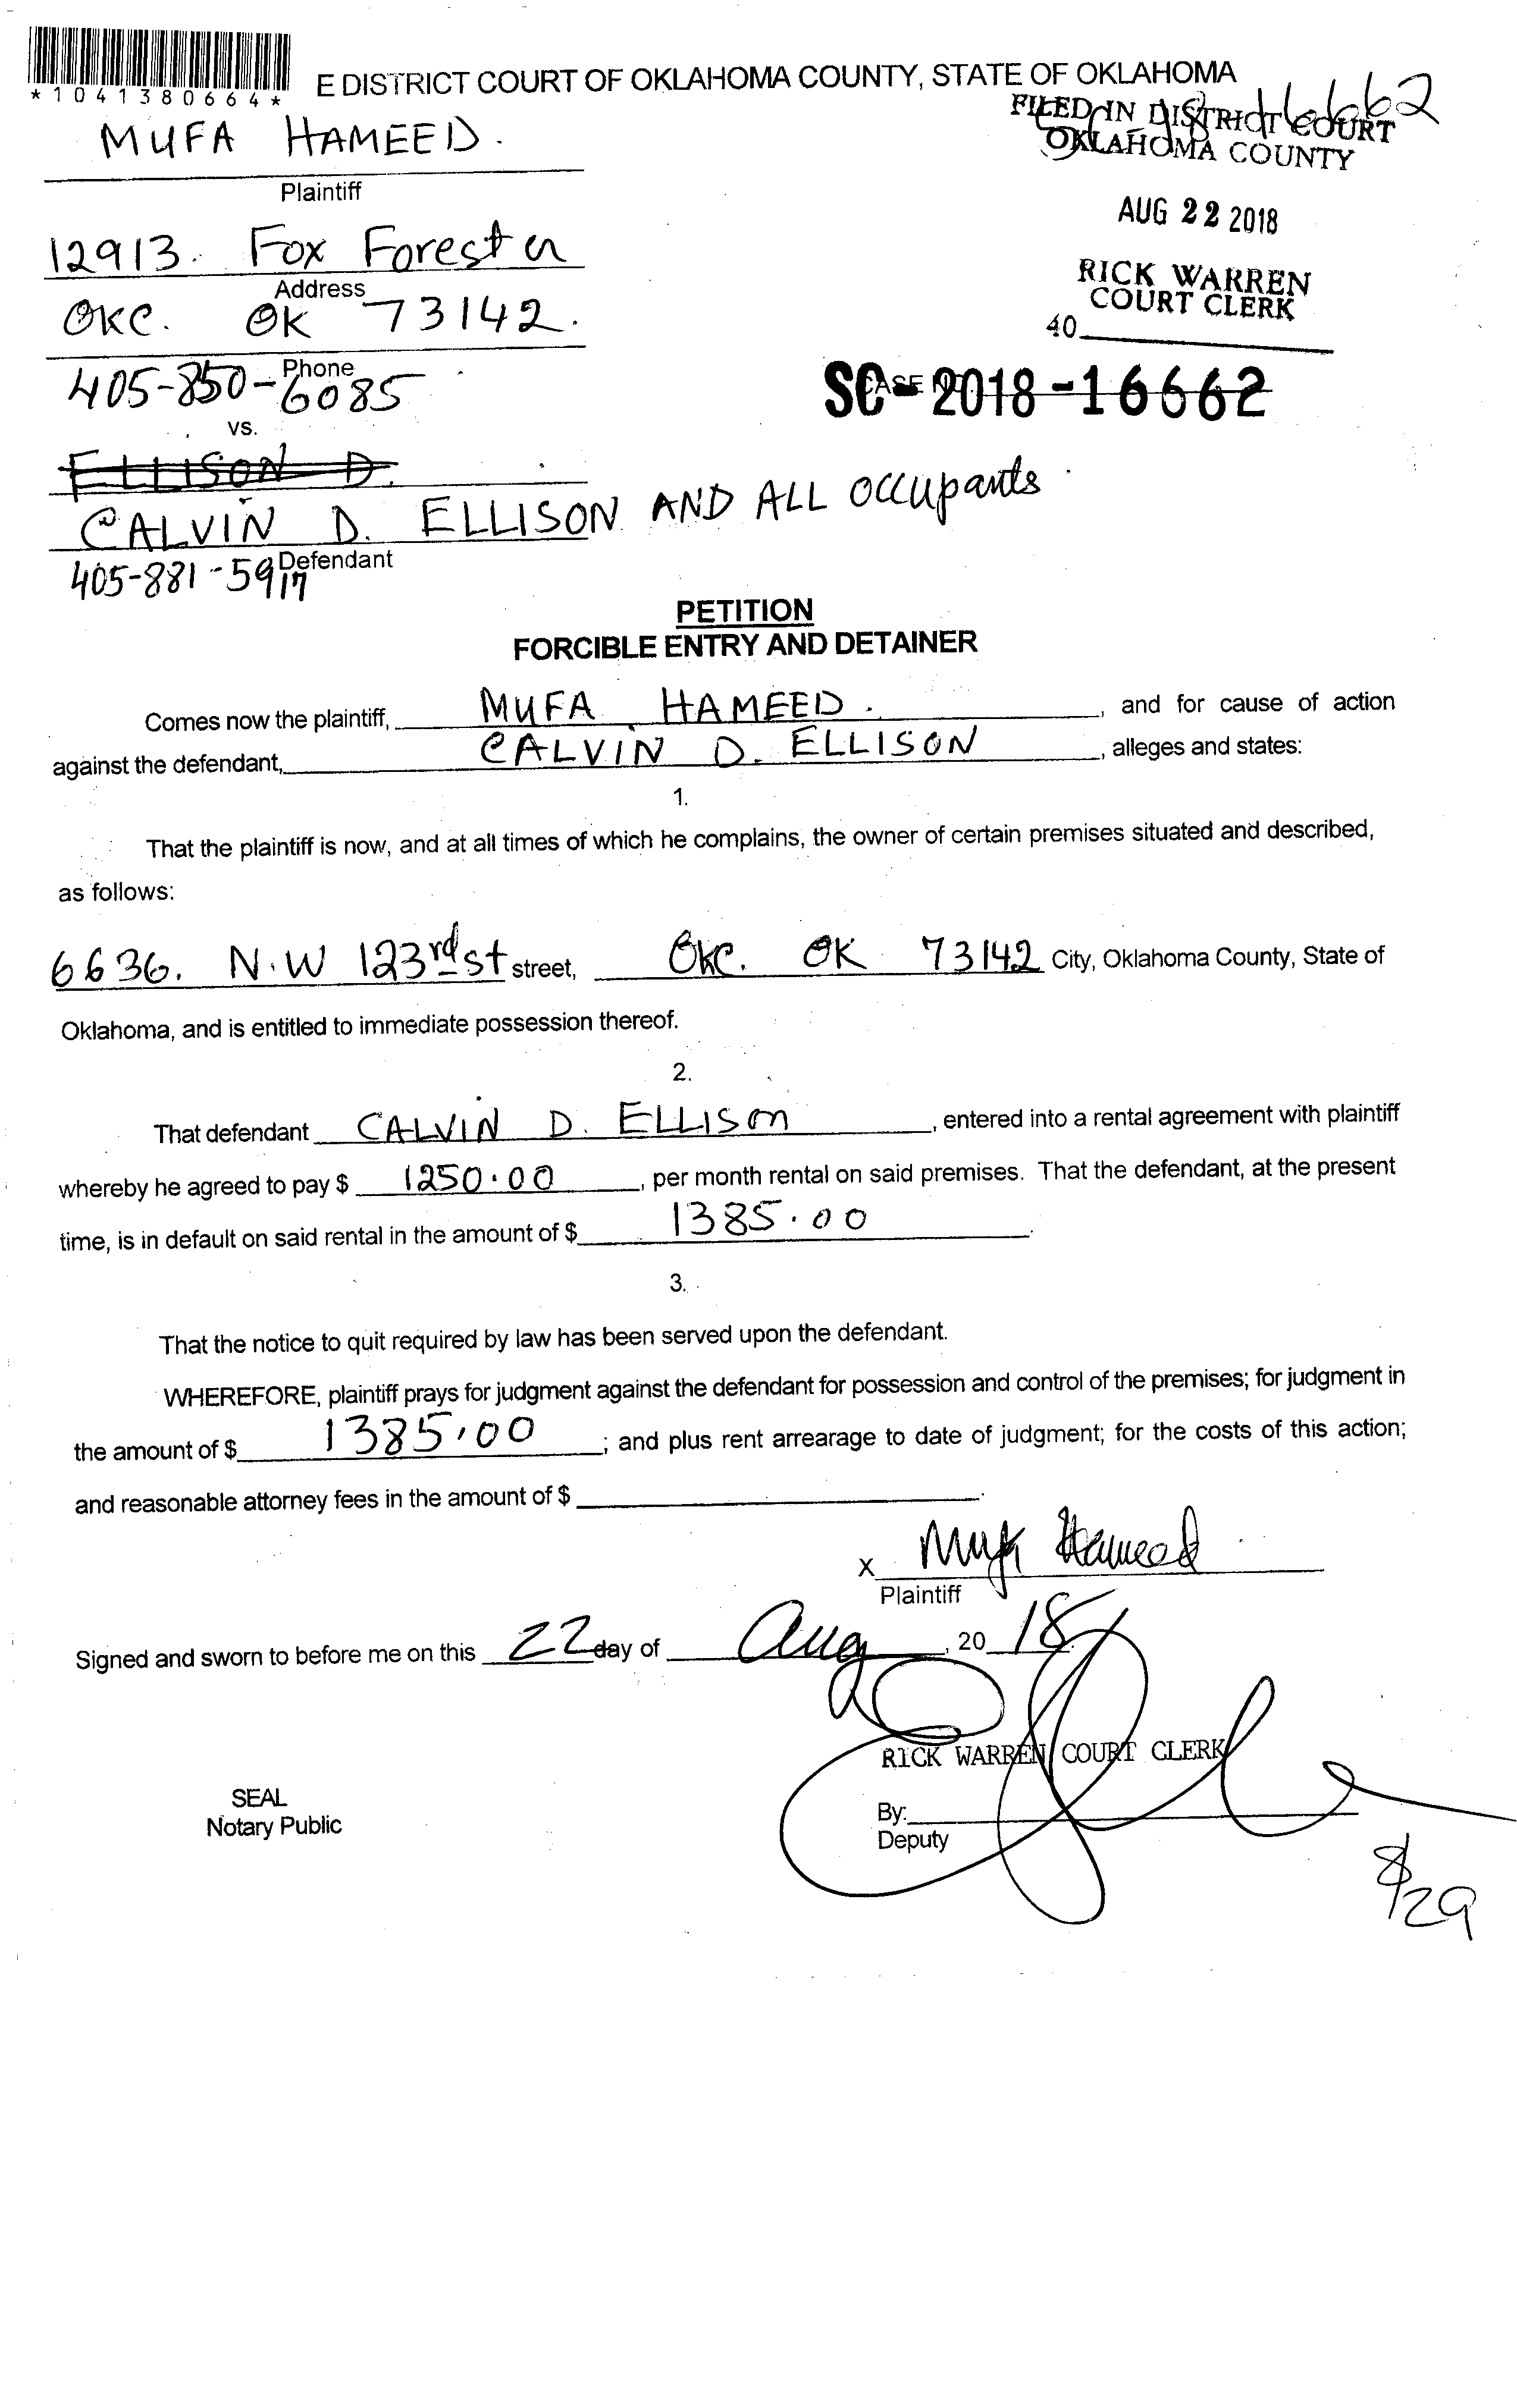 *1041380664*
E DISTRICT COURT OF OKLAHOMA COUNTY, STATE OF OKLAHOMA
16662
FILED IN DISTRICT COURT
OKLAHOMA COUNTY
MUFA HAMEED.
Plaintiff
AUG 22 2018
12913. Fox Forest
Address
RICK WARREN
COURT CLERK
OKC. OK 73142.
40
Phone
405-850-6085
SC-2018-16662
vs.
ELLISON D.
CALVIN D. ELLISON AND ALL OCCUpants
Defendant
405-881-5917
PETITION
FORCIBLE ENTRY AND DETAINER
Comes now the plaintiff, MUFA HAMEED. , and for cause of action
against the defendant, CALVIN D. ELLISON , alleges and states:
1.
That the plaintiff is now, and at all times of which he complains, the owner of certain premises situated and described,
as follows:
6636. N.W 123rd st street, OKC. OK 73142 City, Oklahoma County, State of
Oklahoma, and is entitled to immediate possession thereof.
2.
That defendant CALVIN D. ELLISON , entered into a rental agreement with plaintiff
whereby he agreed to pay $ 1250.00 , per month rental on said premises. That the defendant, at the present
time, is in default on said rental in the amount of $ 1385.00 .
3.
That the notice to quit required by law has been served upon the defendant.
WHEREFORE, plaintiff prays for judgment against the defendant for possession and control of the premises; for judgment in
the amount of $ 1385.00 ; and plus rent arrearage to date of judgment; for the costs of this action;
and reasonable attorney fees in the amount of $ .
x Mufa Hameed
Plaintiff
Signed and sworn to before me on this 22 day of Aug , 20 18
RICK WARREN COURT CLERK
SEAL
Notary Public
By:
Deputy
8/29